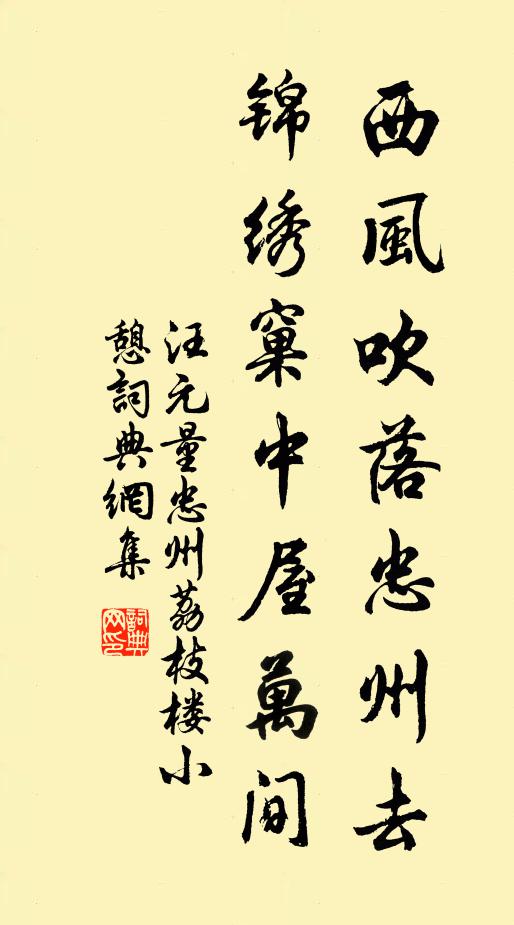 西風吹落忠州去
锦绣窠中屋萬间
汪元量忠州荔枝楼小
憩詞典網集
詞典
网印